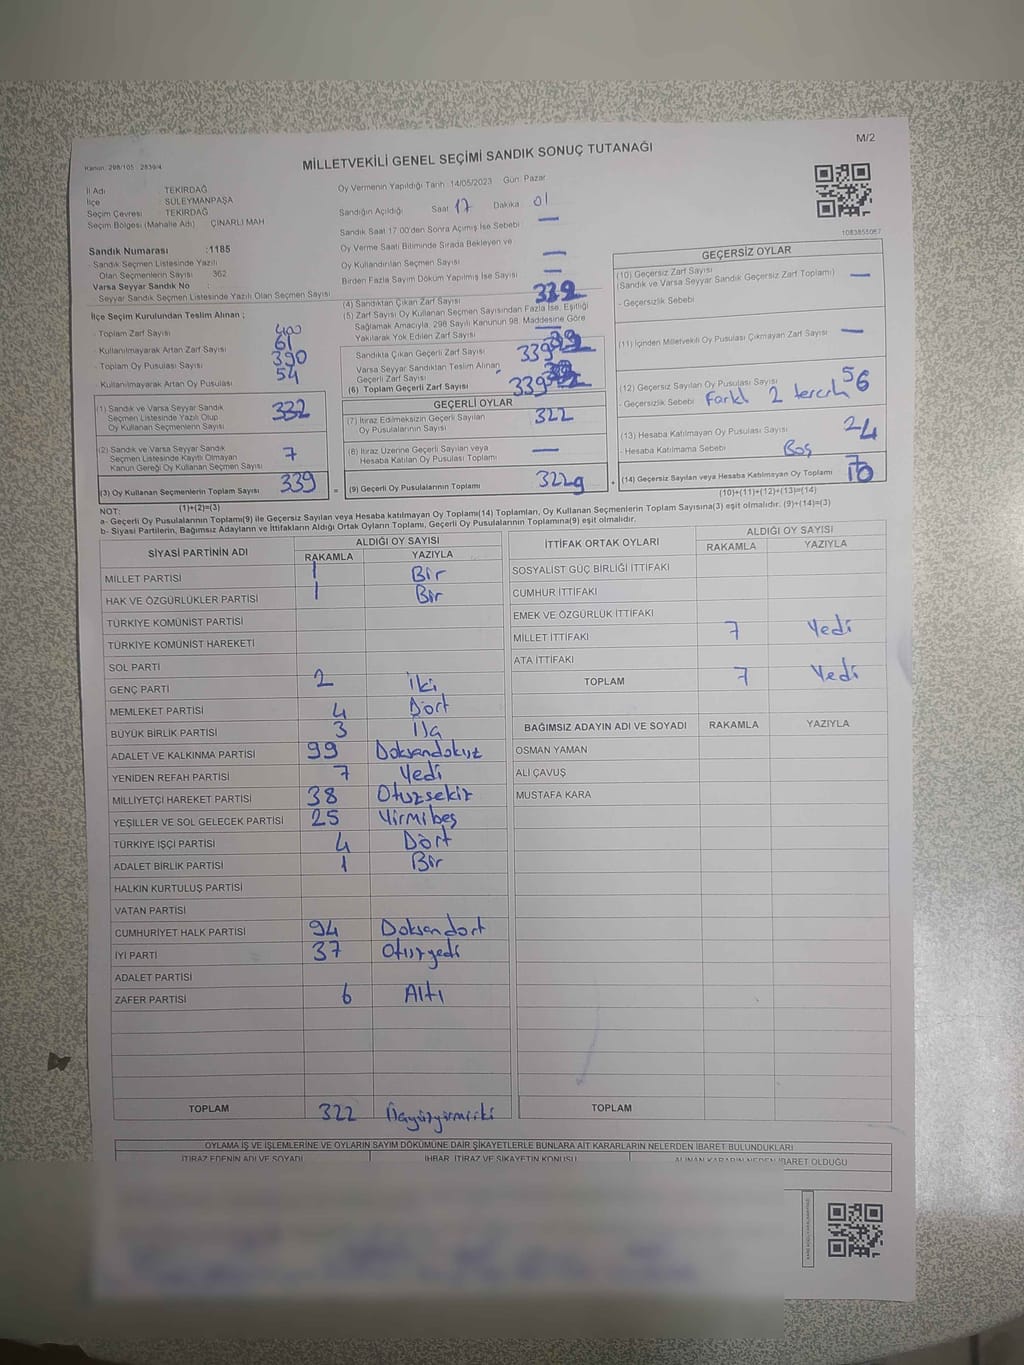 M/2
Kanun: 298/105 : 2839/4
MİLLETVEKİLİ GENEL SEÇİMİ SANDIK SONUÇ TUTANAĞI
İl Adı : TEKİRDAĞ
İlçe : SÜLEYMANPAŞA
Seçim Çevresi : TEKİRDAĞ
Seçim Bölgesi (Mahalle Adı) : ÇINARLI MAH
Sandık Numarası :1185
- Sandık Seçmen Listesinde Yazılı
Olan Seçmenlerin Sayısı : 362
Varsa Seyyar Sandık No :
Seyyar Sandık Seçmen Listesinde Yazılı Olan Seçmen Sayısı
İlçe Seçim Kurulundan Teslim Alınan ;
- Toplam Zarf Sayısı 400
- Kullanılmayarak Artan Zarf Sayısı 61
- Toplam Oy Pusulası Sayısı 390
- Kullanılmayarak Artan Oy Pusulası 54
(1) Sandık ve Varsa Seyyar Sandık
Seçmen Listesinde Yazılı Olup
Oy Kullanan Seçmenlerin Sayısı 332
(2) Sandık ve Varsa Seyyar Sandık
Seçmen Listesinde Kayıtlı Olmayan
Kanun Gereği Oy Kullanan Seçmen Sayısı 7
(3) Oy Kullanan Seçmenlerin Toplam Sayısı 339
(1)+(2)=(3)
Oy Vermenin Yapıldığı Tarih :14/05/2023 Gün: Pazar
Sandığın Açıldığı Saat 17 Dakika 01
Sandık Saat 17:00'den Sonra Açımış İse Sebebi —
Oy Verme Saati Bitiminde Sırada Bekleyen ve
Oy Kullandırılan Seçmen Sayısı —
Birden Fazla Sayım Döküm Yapılmış İse Sayısı —
(4) Sandıktan Çıkan Zarf Sayısı 339
(5) Zarf Sayısı Oy Kullanan Seçmen Sayısından Fazla İse, Eşitliği
Sağlamak Amacıyla, 298 Sayılı Kanunun 98. Maddesine Göre
Yakılarak Yok Edilen Zarf Sayısı —
Sandıkta Çıkan Geçerli Zarf Sayısı 339
Varsa Seyyar Sandıktan Teslim Alınan
Geçerli Zarf Sayısı
(6) Toplam Geçerli Zarf Sayısı 339
GEÇERLİ OYLAR
(7) İtiraz Edilmeksizin Geçerli Sayılan
Oy Pusulalarının Sayısı 322
(8) İtiraz Üzerine Geçerli Sayılan veya
Hesaba Katılan Oy Pusulalarının Toplamı —
= (9) Geçerli Oy Pusulalarının Toplamı 322
+
1083855067
GEÇERSİZ OYLAR
(10) Geçersiz Zarf Sayısı
(Sandık ve Varsa Seyyar Sandık Geçersiz Zarf Toplamı) —
- Geçersizlik Sebebi
(11) İçinden Milletvekili Oy Pusulası Çıkmayan Zarf Sayısı —
(12) Geçersiz Sayılan Oy Pusulası Sayısı 56
- Geçersizlik Sebebi Farklı 2 tercih
(13) Hesaba Katılmayan Oy Pusulası Sayısı 24
- Hesaba Katılmama Sebebi Boş
(14) Geçersiz Sayılan veya Hesaba Katılmayan Oy Toplamı
(10)+(11)+(12)+(13)=(14)
NOT:
a- Geçerli Oy Pusulalarının Toplamı(9) ile Geçersiz Sayılan veya Hesaba Katılmayan Oy Toplamı(14) Toplamları, Oy Kullanan Seçmenlerin Toplam Sayısına(3) eşit olmalıdır. (9)+(14)=(3)
b- Siyasi Partilerin, Bağımsız Adayların ve İttifakların Aldığı Ortak Oyların Toplamı, Geçerli Oy Pusulalarının Toplamına(9) eşit olmalıdır.
SİYASİ PARTİNİN ADI ALDIĞI OY SAYISI
RAKAMLA YAZIYLA
MİLLET PARTİSİ 1 Bir
HAK VE ÖZGÜRLÜKLER PARTİSİ 1 Bir
TÜRKİYE KOMÜNİST PARTİSİ
TÜRKİYE KOMÜNİST HAREKETİ
SOL PARTİ
GENÇ PARTİ 2 İki
MEMLEKET PARTİSİ 4 Dört
BÜYÜK BİRLİK PARTİSİ 3 Üç
ADALET VE KALKINMA PARTİSİ 99 Doksandokuz
YENİDEN REFAH PARTİSİ 7 Yedi
MİLLİYETÇİ HAREKET PARTİSİ 38 Otuzsekiz
YEŞİLLER VE SOL GELECEK PARTİSİ 25 Yirmibeş
TÜRKİYE İŞÇİ PARTİSİ 4 Dört
ADALET BİRLİK PARTİSİ 1 Bir
HALKIN KURTULUŞ PARTİSİ
VATAN PARTİSİ
CUMHURİYET HALK PARTİSİ 94 Doksandört
İYİ PARTİ 37 Otuzyedi
ADALET PARTİSİ
ZAFER PARTİSİ 6 Altı
TOPLAM 322 Üçyüzyirmiiki
İTTİFAK ORTAK OYLARI ALDIĞI OY SAYISI
RAKAMLA YAZIYLA
SOSYALİST GÜÇ BİRLİĞİ İTTİFAKI
CUMHUR İTTİFAKI
EMEK VE ÖZGÜRLÜK İTTİFAKI
MİLLET İTTİFAKI 7 Yedi
ATA İTTİFAKI
TOPLAM 7 Yedi
BAĞIMSIZ ADAYIN ADI VE SOYADI RAKAMLA YAZIYLA
OSMAN YAMAN
ALİ ÇAVUŞ
MUSTAFA KARA
TOPLAM
OYLAMA İŞ VE İŞLEMLERİNE VE OYLARIN SAYIM DÖKÜMÜNE DAİR ŞİKAYETLERLE BUNLARA AİT KARARLARIN NELERDEN İBARET BULUNDUKLARI
İTİRAZ EDENİN ADI VE SOYADI İHBAR, İTİRAZ VE ŞİKAYETİN KONUSU ALINAN KARARIN NEDEN İBARET OLDUĞU